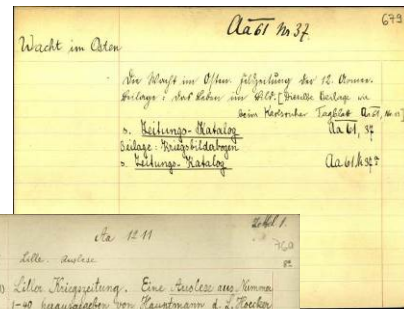 Aa 61 Nr 37.
679
Wacht im Osten
Die Wacht im Osten. Feldzeitung der 12. Armee.
Beilage: Das Leben im Bild. [Dieselbe Beilage wie
beim Karlsruher Tagblatt Aa 61,
s. Zeitungs-Katalog Aa 61, 37
Beilage: Kriegsbildabogen
s. Zeitungs-Katalog Aa 61, N 37
Zettel 1.
Aa 1211
760
Lille. Auslese
8°
Liller Kriegszeitung. Eine Auslese aus Nummer
1-40 herausgegeben von Hauptmann d. L. Hoecker